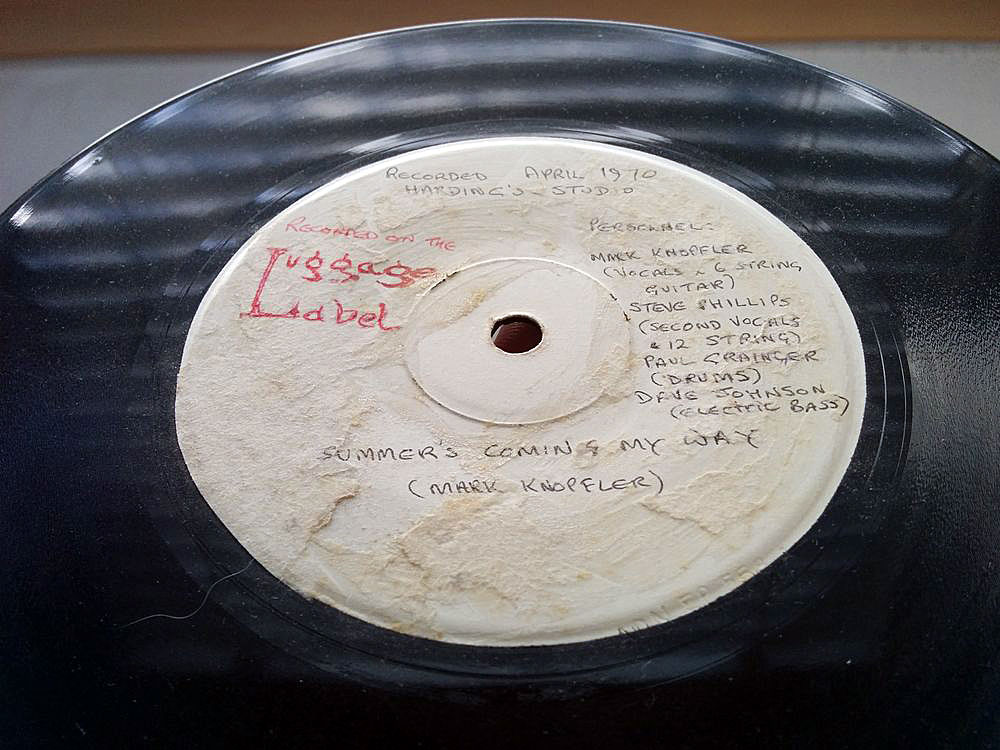 RECORDED APRIL 1970
HARDING'S STUDIO
RECORDED ON THE
Luggage
Label
PERSONNEL:
MARK KNOPFLER
(VOCALS & 6 STRING
GUITAR)
STEVE PHILLIPS
(SECOND VOCALS
& 12 STRING)
PAUL GRAINGER
(DRUMS)
DAVE JOHNSON
(ELECTRIC BASS)
SUMMER'S COMING MY WAY
(MARK KNOPFLER)